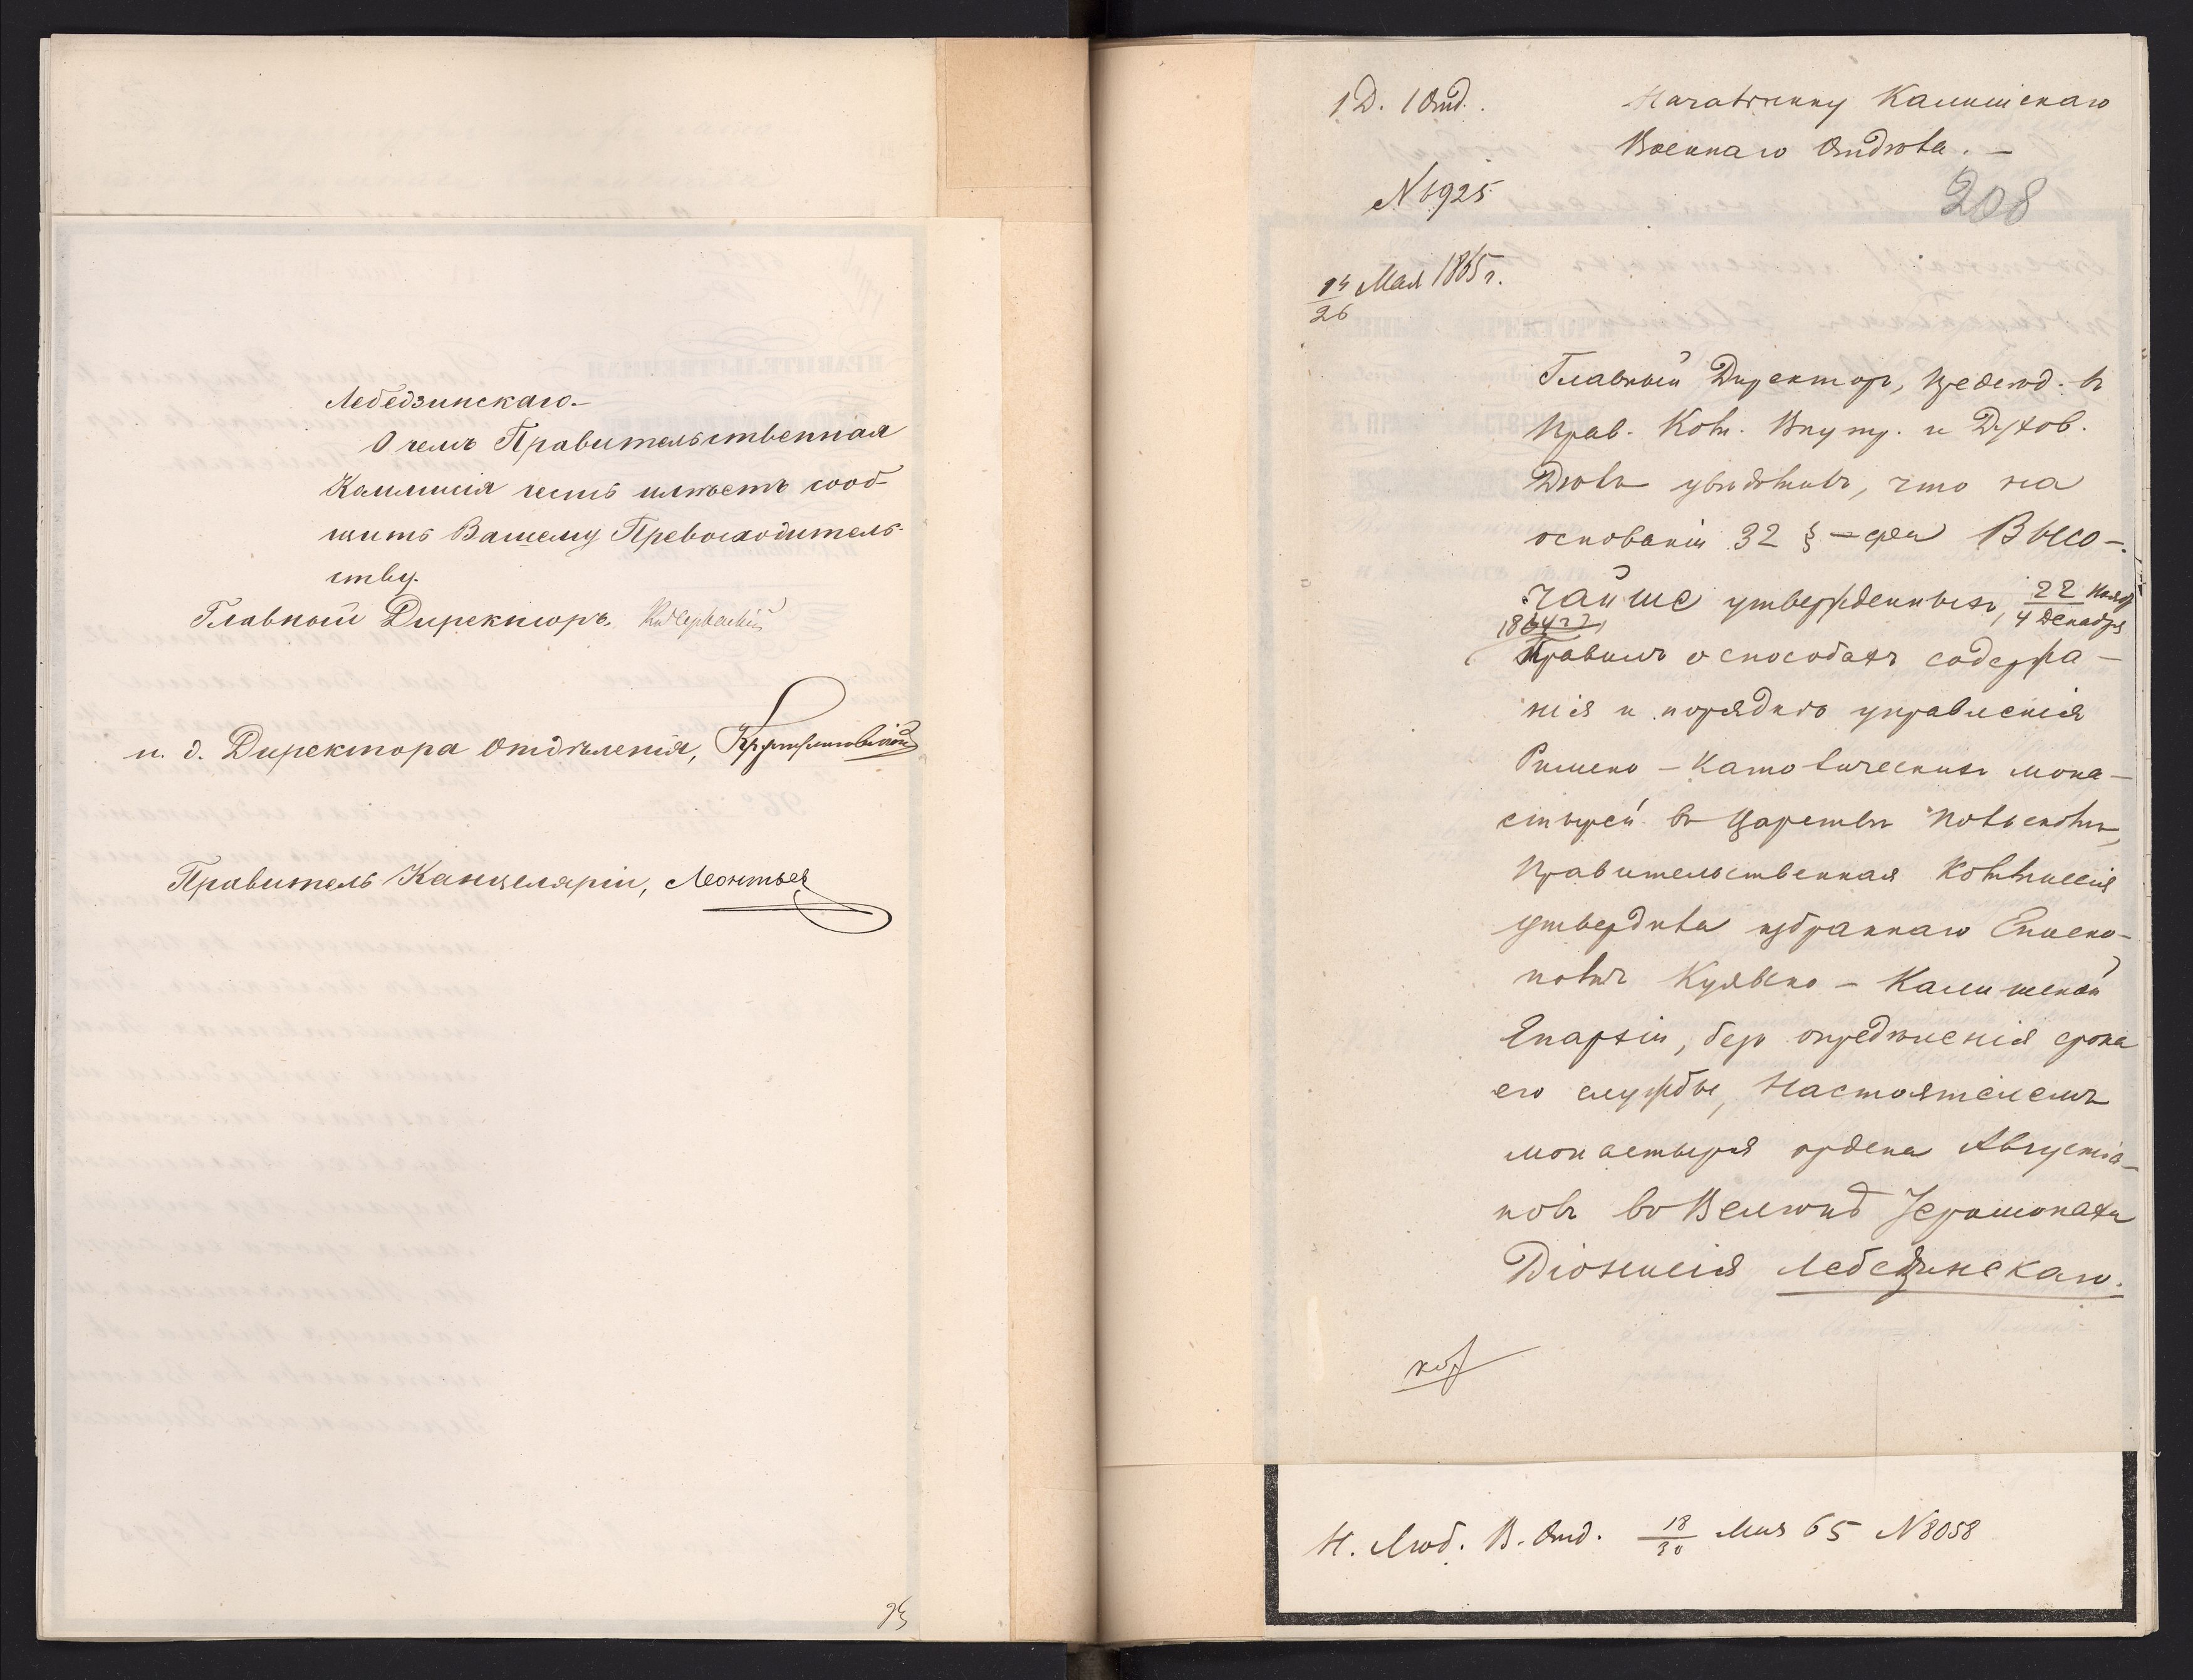 Лебедзинскаго.-
О чемъ Правительственная
Коммисія честь имѣетъ сооб-
щить Вашему Превосходитель-
ству.
Главный Директоръ,
и. д. Директора Отдѣленія,
Правитель Канцеляріи, Леонтьев
1 Д. 1 Отд.
Начальнику Калишскаго
Военнаго Отдѣла. -
N 6925
208
14/26 Мая 1865 г.
Главный Директоръ, предсѣд. въ
Прав. Ком. Внутр. и Духов.
Дѣлъ увѣдомилъ, что на
основаніи 32 § Высо-
чайше утвержденныхъ, 22 Нояб/4 Декабря
1864 г.,
Правилъ о способахъ содержа-
нія и порядкѣ управленія
Римско-Католическихъ мона-
стырей въ Царствѣ Польскомъ,
Правительственная Коммиссія
утвердила избраннаго Еписко-
помъ Куявско-Калишской
Епархіи, безъ опредѣленія срока
его службы, Настоятелемъ
монастыря ордена Августіа-
новъ въ Велюнѣ Іеромонаха
Діонисія Лебедзинскаго.
Н. Люб. В. Отд. 18/30 Мая 65 N 8058